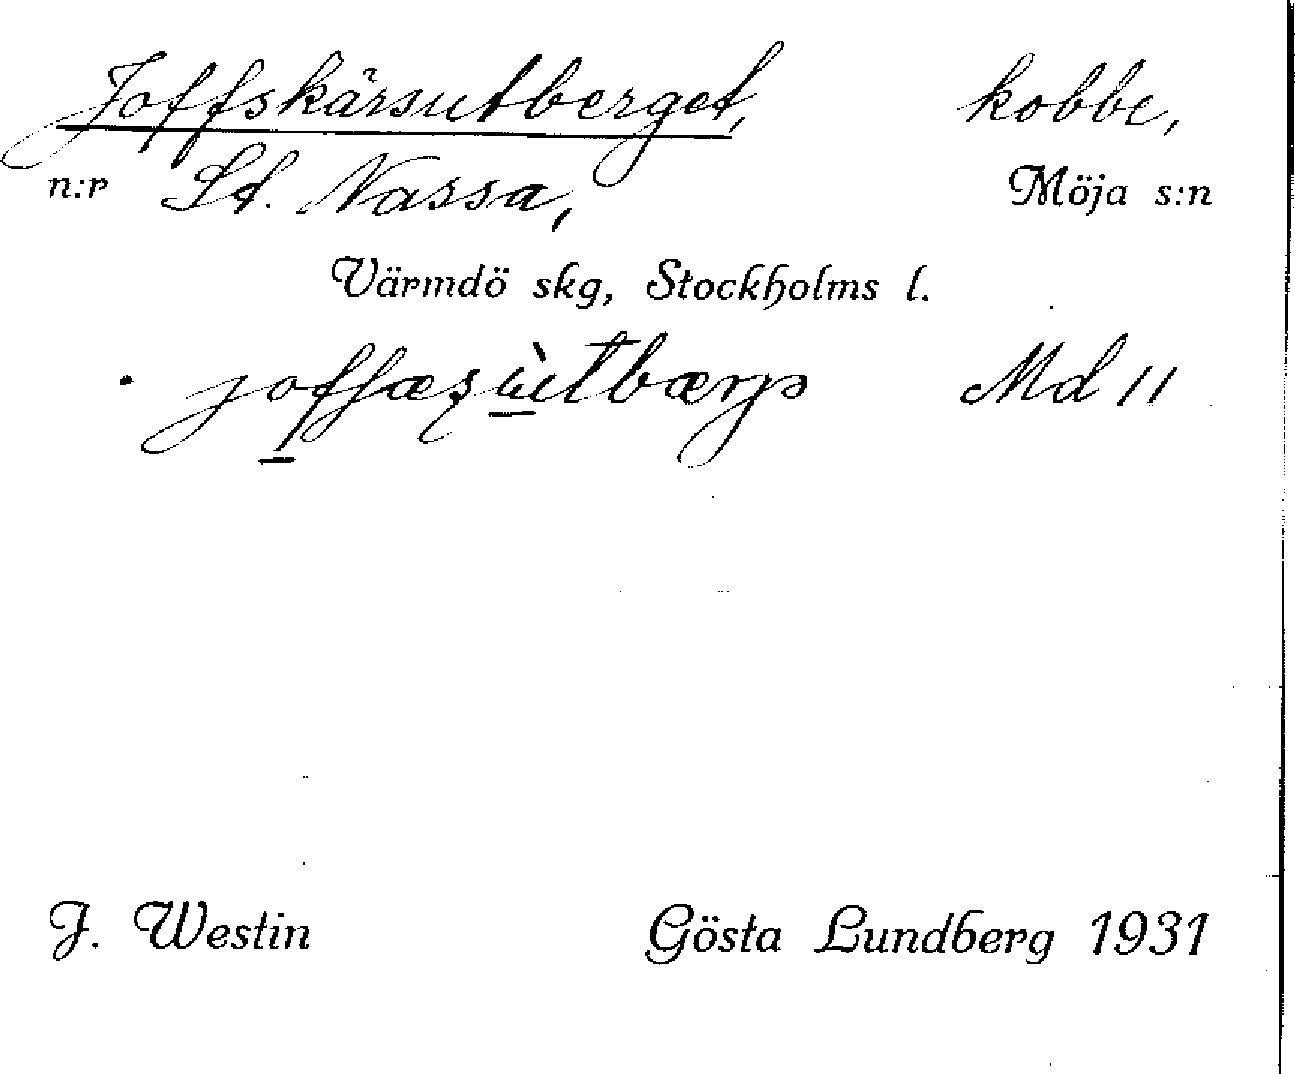 Joffskärsutberget, kobbe,
n:r St. Nassa, Möja s:n
Värmdö skg, Stockholms l.
Md 11
J. Westin Gösta Lundberg 1931